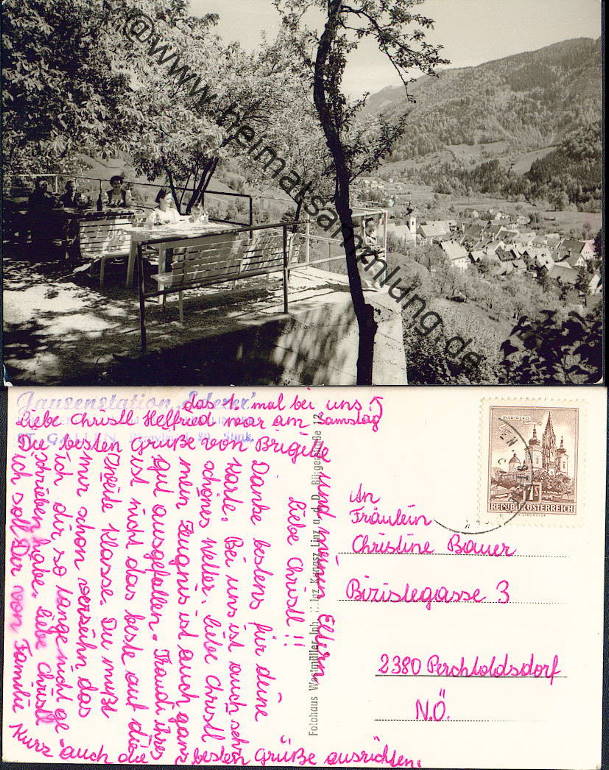 @www.heimatsammlung.de
Jausenstation
das 1. mal bei uns!
Liebe Christl Helfried war am Samstag
Die besten Grüße von Brigitte
und meinen Eltern
Liebe Christl!!
Danke bestens für deine
Karte. Bei uns ist auch sehr
schönes Wetter. liebe Christl
mein Zeugnis ist auch ganz
gut ausgefallen. Traudi ihres
ist nicht das beste auf die
zweite Klasse. Du mußt
mir schon verzeihn das
ich dir so lange nicht ge-
schrieben habe. liebe Christl
ich soll Dir von Familie
Kurz auch die besten Grüße ausrichten.
Fotohaus Westmüller
Linz a. d. D. Bürgerstraße 12
REPUBLIK ÖSTERREICH
An
Fräulein
Christine Bauer
3
2380 Perchtoldsdorf
N.Ö.